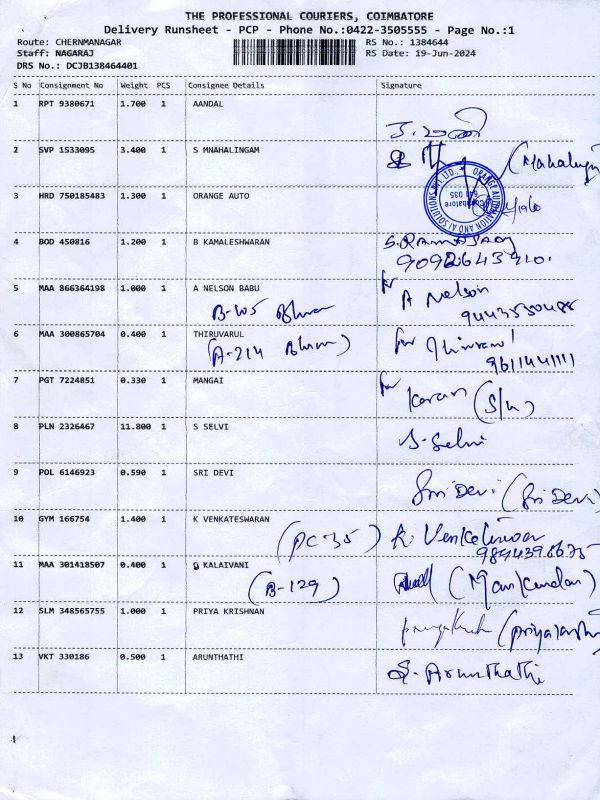 THE PROFESSIONAL COURIERS, COIMBATORE
Delivery Runsheet - PCP - Phone No.:0422-3505555 - Page No.:1
Route: CHERNMANAGAR RS No.: 1384644
Staff: NAGARAJ RS Date: 19-Jun-2024
DRS No.: DCJB138464401
S No Consignment No Weight PCS Consignee Details Signature
1 RPT 9380671 1.700 1 AANDAL
2 SVP 1533095 3.400 1 S MNAHALINGAM
3 HRD 750185483 1.300 1 ORANGE AUTO
ORANGE AUTOMATION AND AI SOLUTIONS PVT. LTD.,
Coimbatore
4 BOD 450816 1.200 1 B KAMALESHWARAN
5 MAA 866364198 1.000 1 A NELSON BABU for A Nelson
B-105
6 MAA 300865704 0.400 1 THIRUVARUL for
(A-214 9611441111
7 PGT 7224851 0.330 1 MANGAI for
Karan (S/W)
8 PLN 2326467 11.800 1 S SELVI S-Selvi
9 POL 6146923 0.590 1 SRI DEVI
Sri Devi (Sri Devi)
10 GYM 166754 1.400 1 K VENKATESWARAN
(PC-35) K.
11 MAA 301418507 0.400 1 G KALAIVANI
(B-129) (Manikandan)
12 SLM 348565755 1.000 1 PRIYA KRISHNAN
13 VKT 330186 0.500 1 ARUNTHATHI
S. Arunthathi